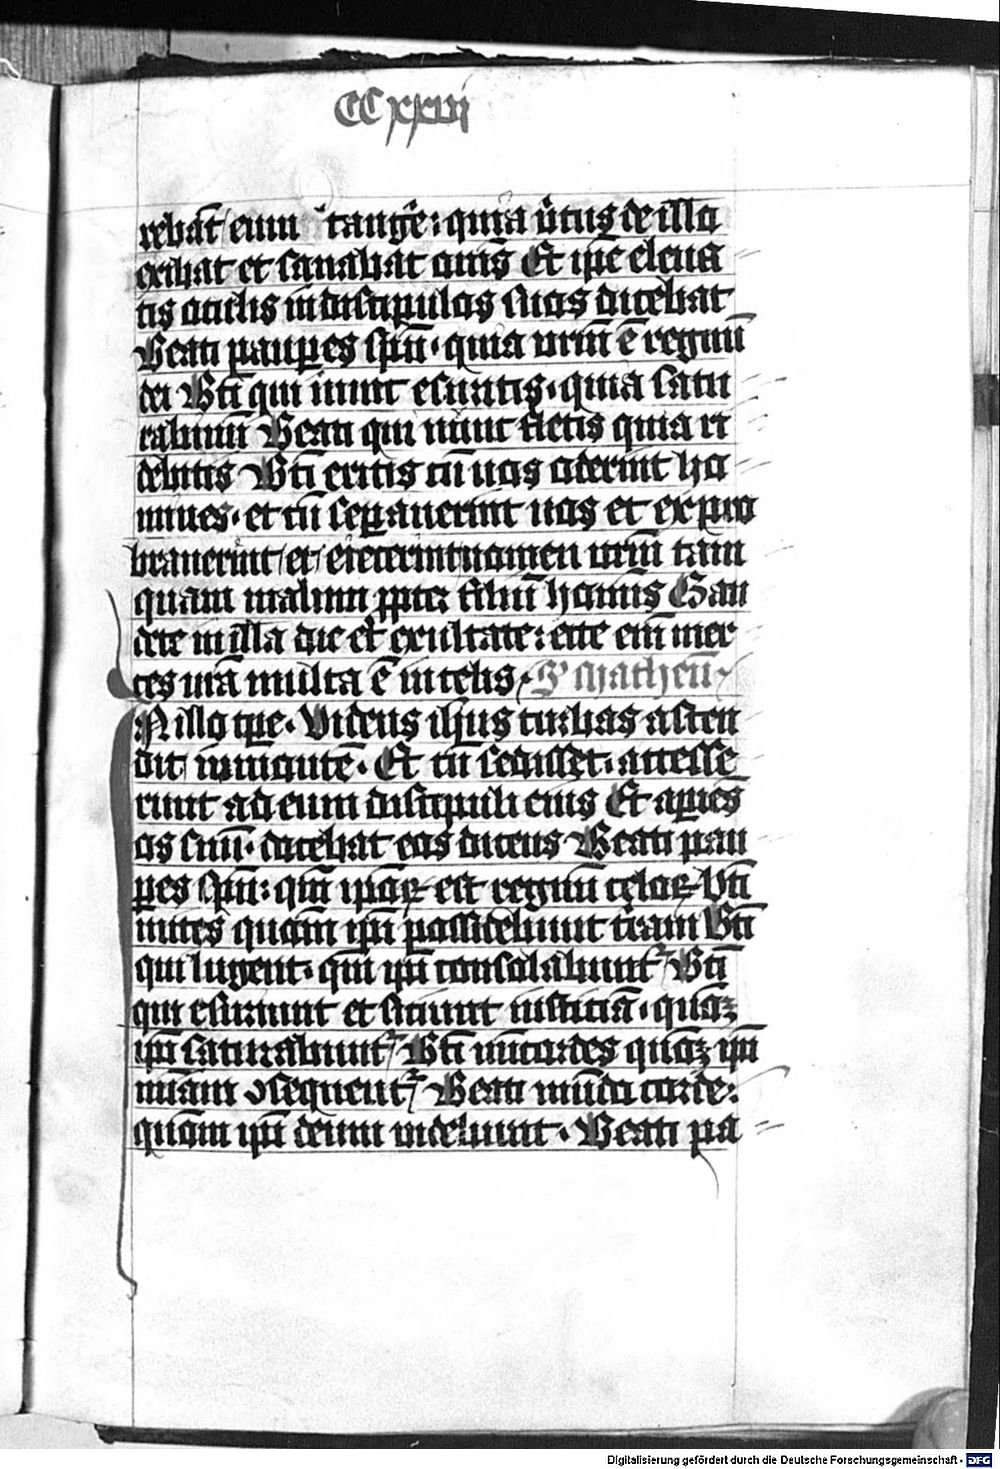 CCxxvi
rebāt eum tangē͛: quia v͛tus de illo
exibat et sanabat om̄s Et ip̄e eleua
tis oculis in discipulos suos dicebat
Beati paup̲es sp̄u · quia vrm̄ ē regnū
dei Bt̄i qui nunc esuritis · quia satu
rabimī Beati qui nunc fletis quia ri
debitis Bt̄i eritis cū uos oderint ho
mines · et cū sep̲auerint uos et expro
brauerint et eiecerint nomen vrm̄ tam
quam malum ꝓpter filiū hominis Gau
dete in illa die et exultate: ecce em̄ mer
ces urā multa ē in celis · S' Matheū
N illo tp̄e · Videns ihūs turbas ascen
dit in montē · Et cū sedisset · accesse
runt ad eum discipuli eius Et ap̲iēs
os suū · docebat eos dicens Beati pau
p̲es sp̄u: qm̄ ip̄oꝝ est regnū celoꝝ Bt̄i
mites quom̄ ip̄i possidebunt t͛ram Bt̄i
qui lugent · qm̄ ip̄i consolabunt᷑ Bt̄i
qui esuriunt et sitiunt iusticiā · quōꝫ
ip̄i saturabunt᷑ Bt̄i mīcordes quōꝫ ip̄i
mīam ꝯsequent᷑ Beati mūdo corde:
quom̄ ip̄i deum uidebunt · Beati pa
Digitalisierung gefördert durch die Deutsche Forschungsgemeinschaft - DFG